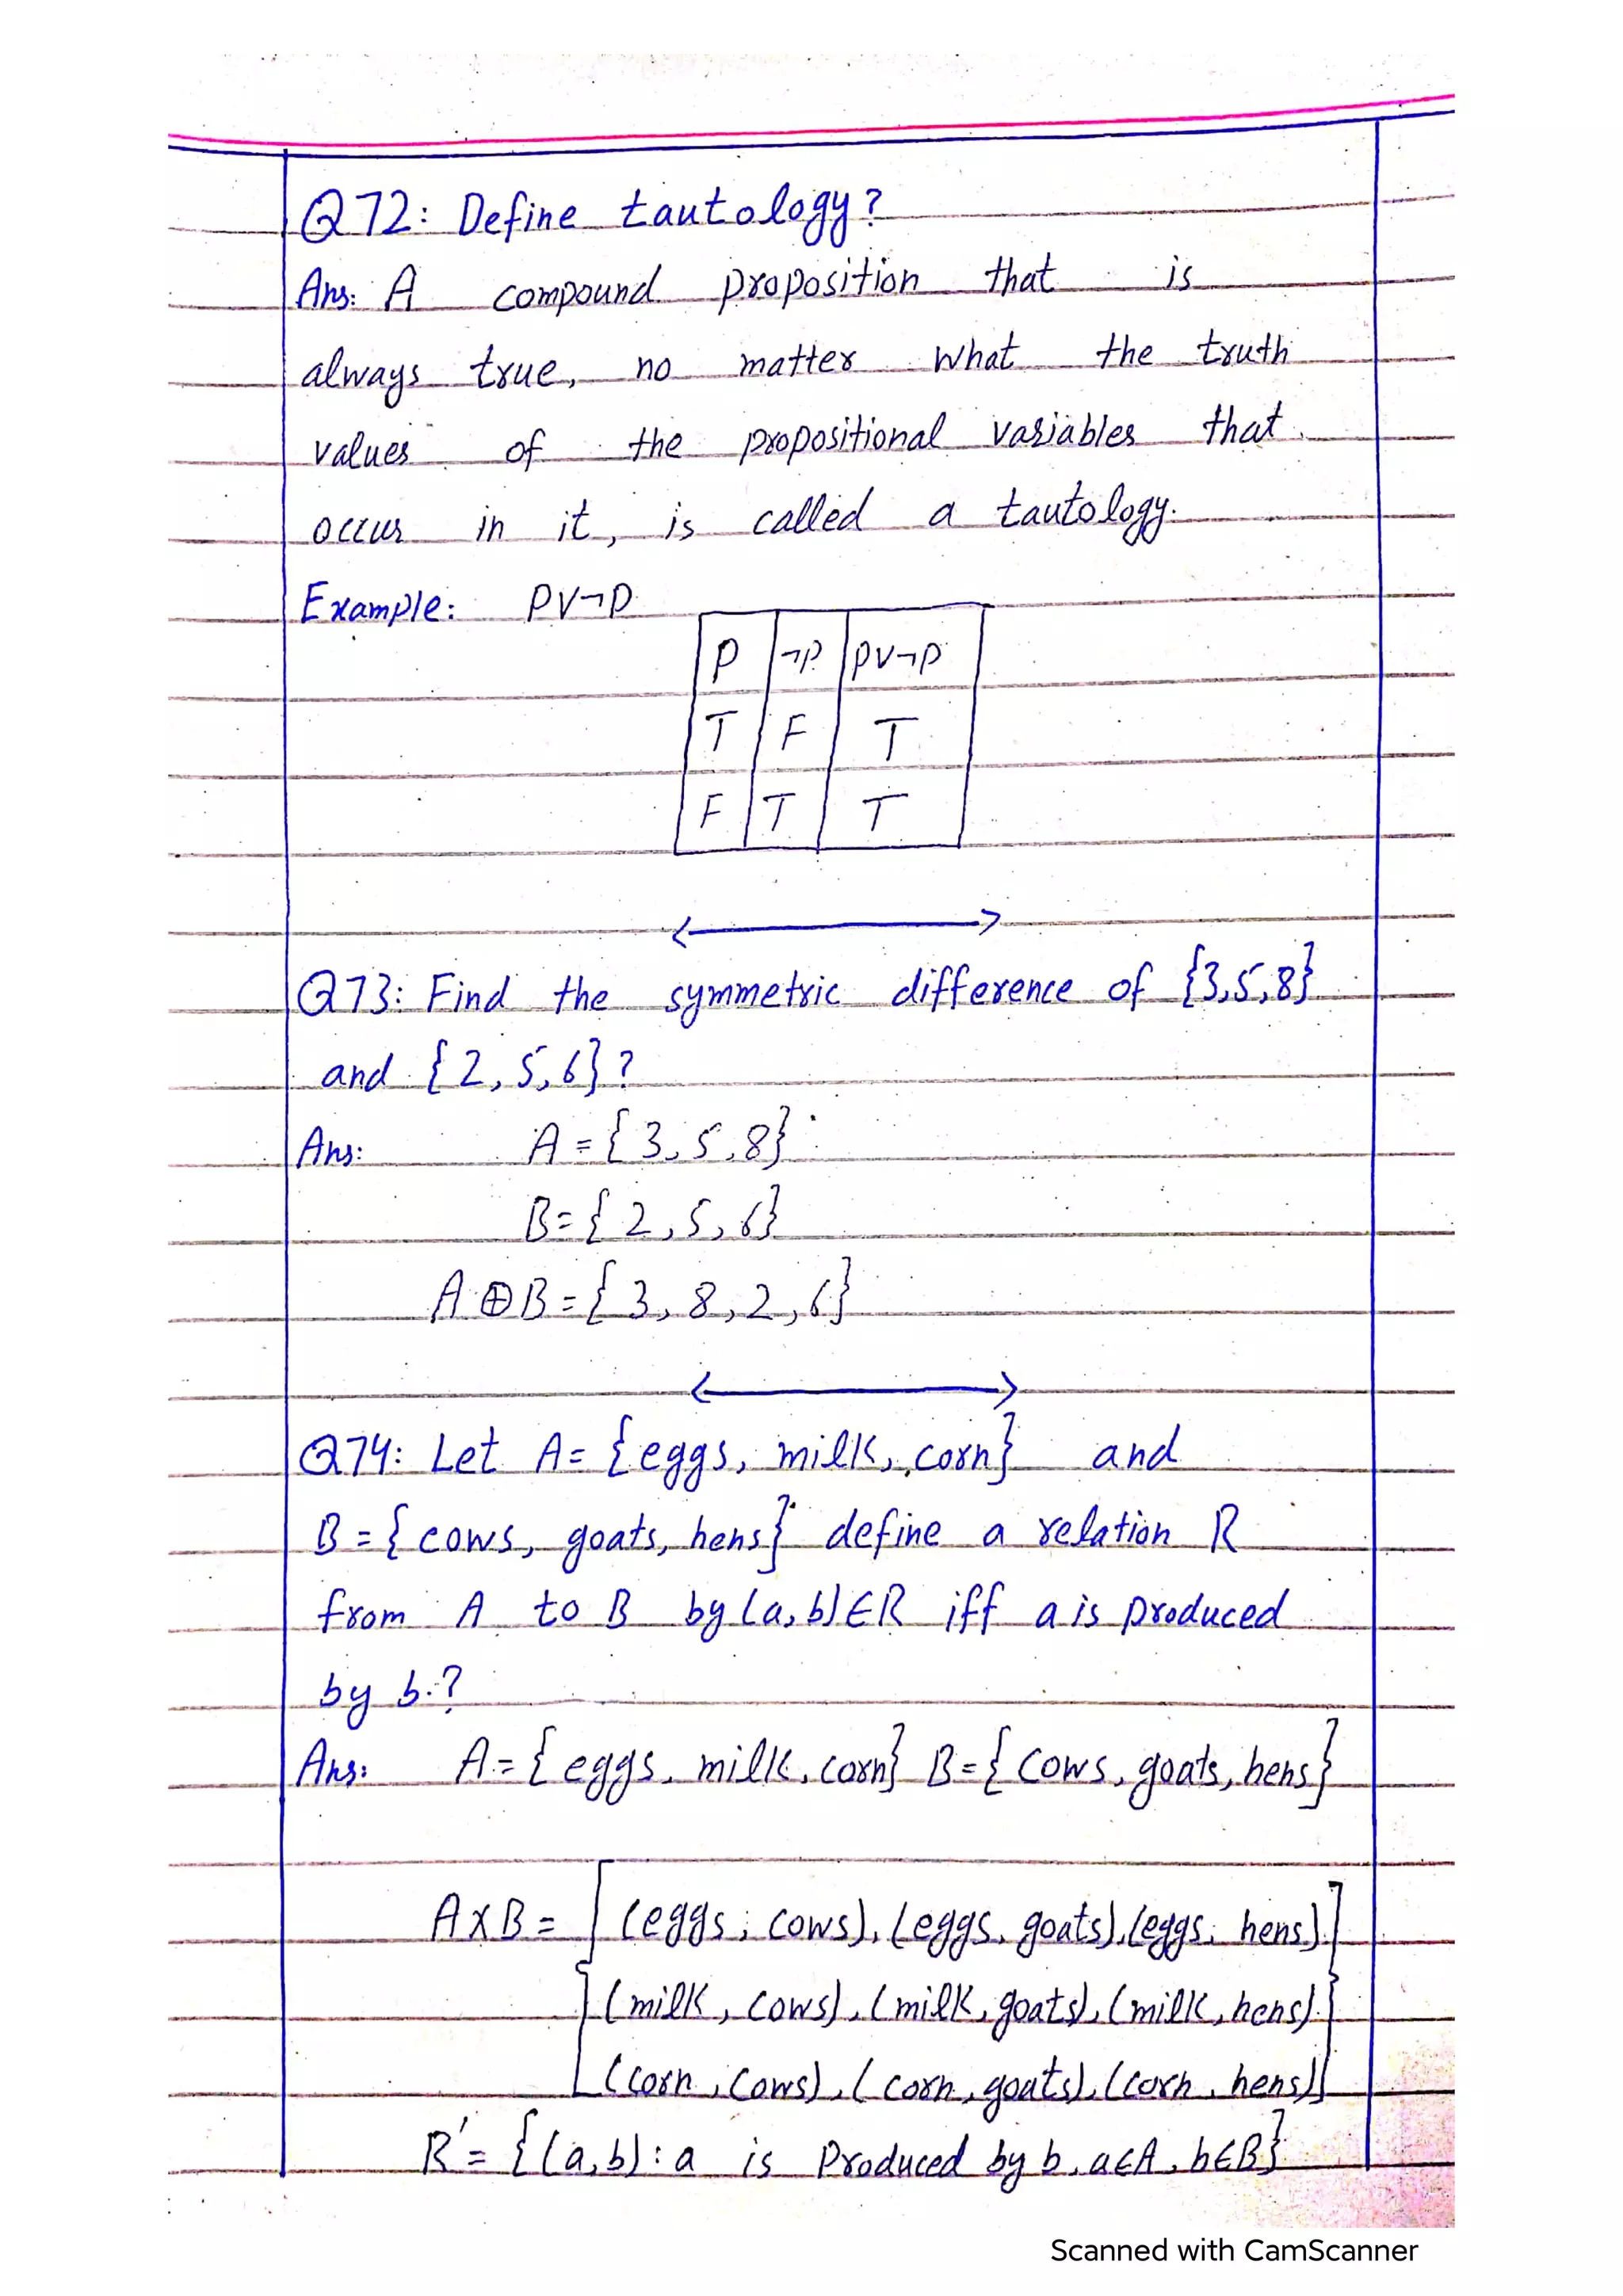 Q72: Define tautology?
Ans: A compound proposition that is
always true, no matter what the truth
values of the propositional variables that
occur in it, is called a tautology.
Example: P∨¬P
P ¬P P∨¬P
T F T
F T T
Q73: Find the symmetric difference of {3,5,8}
and {2,5,6}?
Ans: A = {3,5,8}
B = {2,5,6}
A⊕B = {3,8,2,6}
Q74: Let A = {eggs, milk, corn} and
B = {cows, goats, hens} define a relation R
from A to B by (a,b)∈R iff a is produced
by b.?
Ans: A = {eggs, milk, corn} B = {cows, goats, hens}
A×B = {(eggs, cows), (eggs, goats), (eggs, hens)
(milk, cows), (milk, goats), (milk, hens)
(corn, cows), (corn, goats), (corn, hens)}
R' = {(a,b) : a is Produced by b, a∈A, b∈B}
Scanned with CamScanner